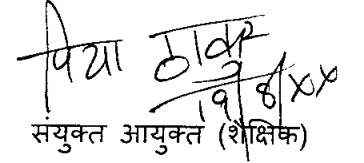 पिया ठाकुर
19/8/XX
संयुक्त आयुक्त (शैक्षिक)